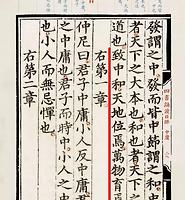 發謂之中發而皆中節謂之和中
者天下之大本也和也者天下之
道也致中和天地位焉萬物育焉
右第一章
仲尼曰君子中庸小人反中庸君
之中庸也君子而時中小人之中
也小人而無忌憚也
右第二章